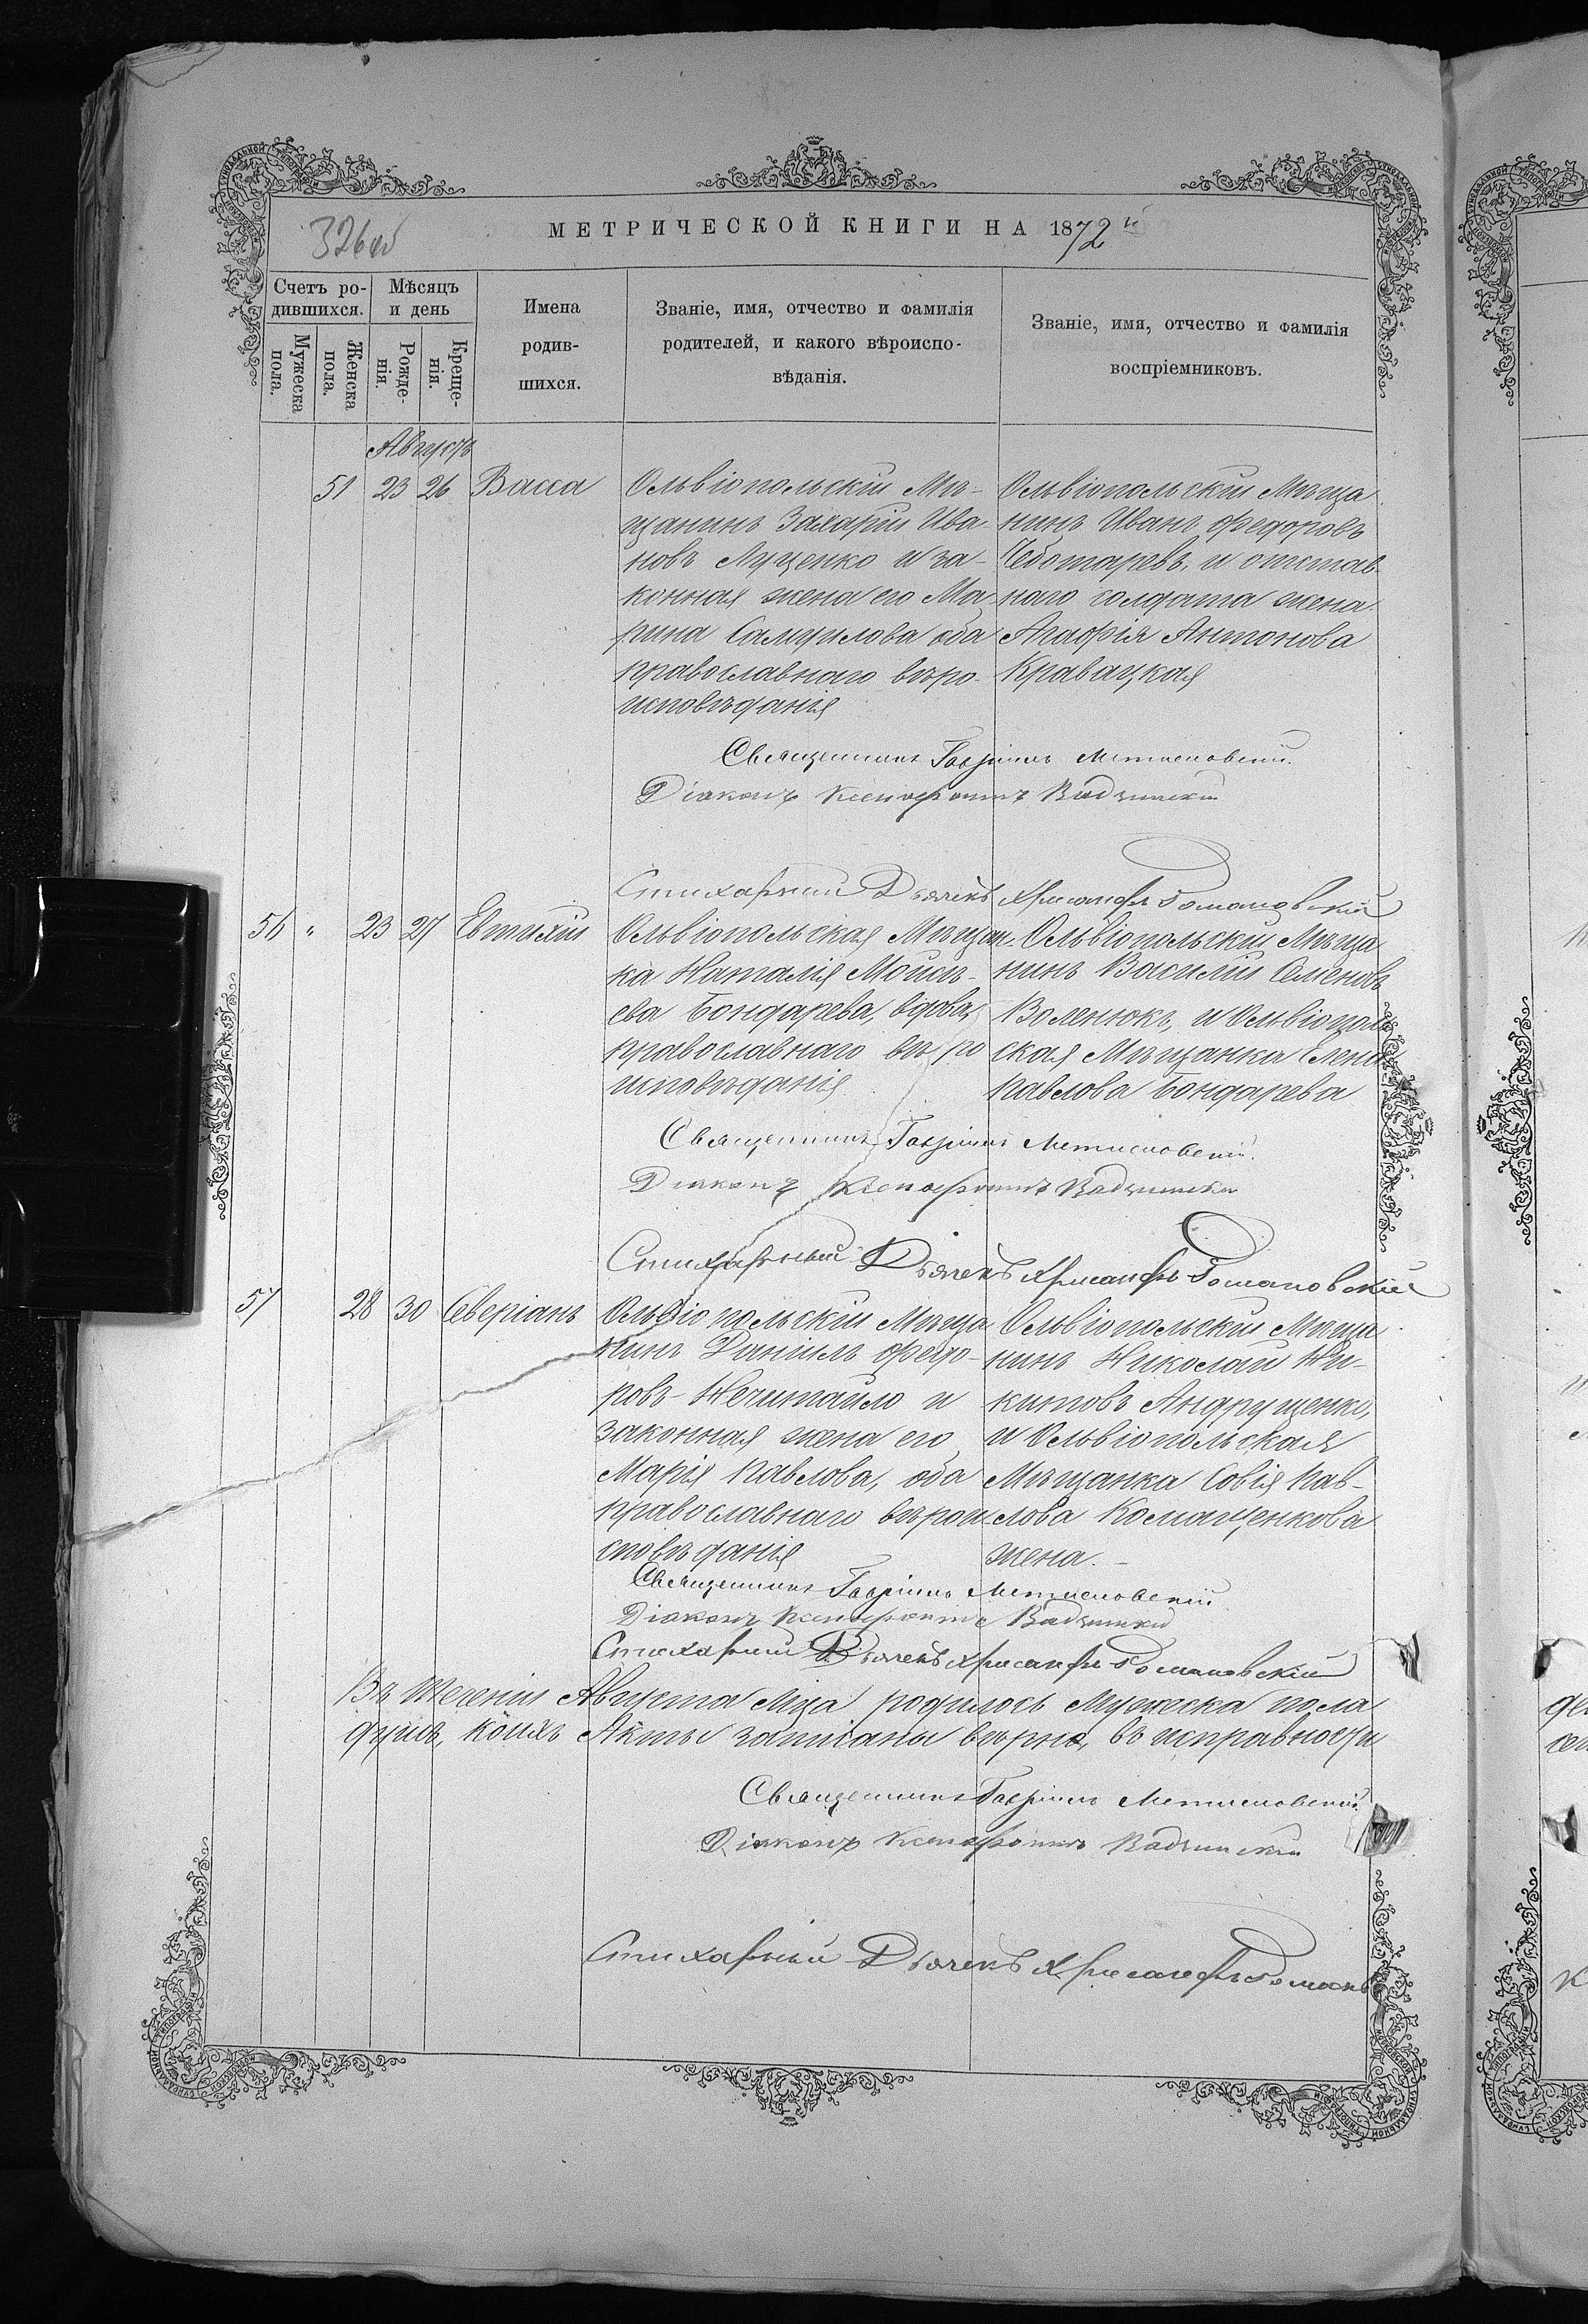 МЕТРИЧЕСКОЙ КНИГИ НА 1872й
326об
Счетъ ро-
дившихся.
Мужеска
пола.
Женска
пола.
Мѣсяцъ
и день
Рожде-
нія.
Креще-
нія.
Имена
родив-
шихся.
Званіе, имя, отчество и фамилія
родителей, и какого вѣроиспо-
вѣданія.
Званіе, имя, отчество и фамилія
воспріемниковъ.
Августъ
51 23 26 Васса
Ольвіопольскій Мѣ-
щанинъ Захарій Ива-
новъ Луценко и за-
конная жена его Ма-
рина Самуилова оба
православнаго вѣро-
исповѣданія
Ольвіопольскій Мѣща
нинъ Иванъ Федоровъ
Чеботаревъ, и отстав-
наго солдата жена
Агафія Антонова
Кравацкая
Священникъ Гавріилъ
Діаконъ Ксенофонтъ
Стихарный Дьячекъ Хрисанфъ Романовскій
56 " 23 27 Евтихій
Ольвіопольская Мѣщан-
ка Наталія Моисѣ-
ева Бондарева, вдова,
православнаго вѣро
исповѣданія
Ольвіопольскій Мѣща
нинъ Василій Семеновъ
Воленюкъ, и Ольвіополь
ская Мѣщанка Елена
Павлова Бондарева
Священникъ Гавріилъ
Діаконъ Ксенофонтъ
Стихарный Дьячекъ Хрисанфъ Романовскій
57 28 30 Северіанъ
Ольвіопольскій Мѣща
нинъ Даніилъ Федо-
ровъ Нечитайло и
законная жена его
Марія Павлова, оба
православнаго вѣрои-
сповѣданія
Ольвіопольскій Мѣща
нинъ Николай Ни-
китовъ Андрущенко,
и Ольвіопольская
Мѣщанка Софія Пав-
лова Комащенкова
жена.-
Священникъ Гавріилъ
Діаконъ Ксенофонтъ
Стихарный Дьячекъ Хрисанфъ Романовскій
Въ теченіи Августа Мца родилось Мужеска пола
душъ, коихъ Акты записаны вѣрно, въ исправности
Священникъ Гавріилъ
Діаконъ Ксенофонтъ
Стихарный Дьячекъ Хрисанфъ